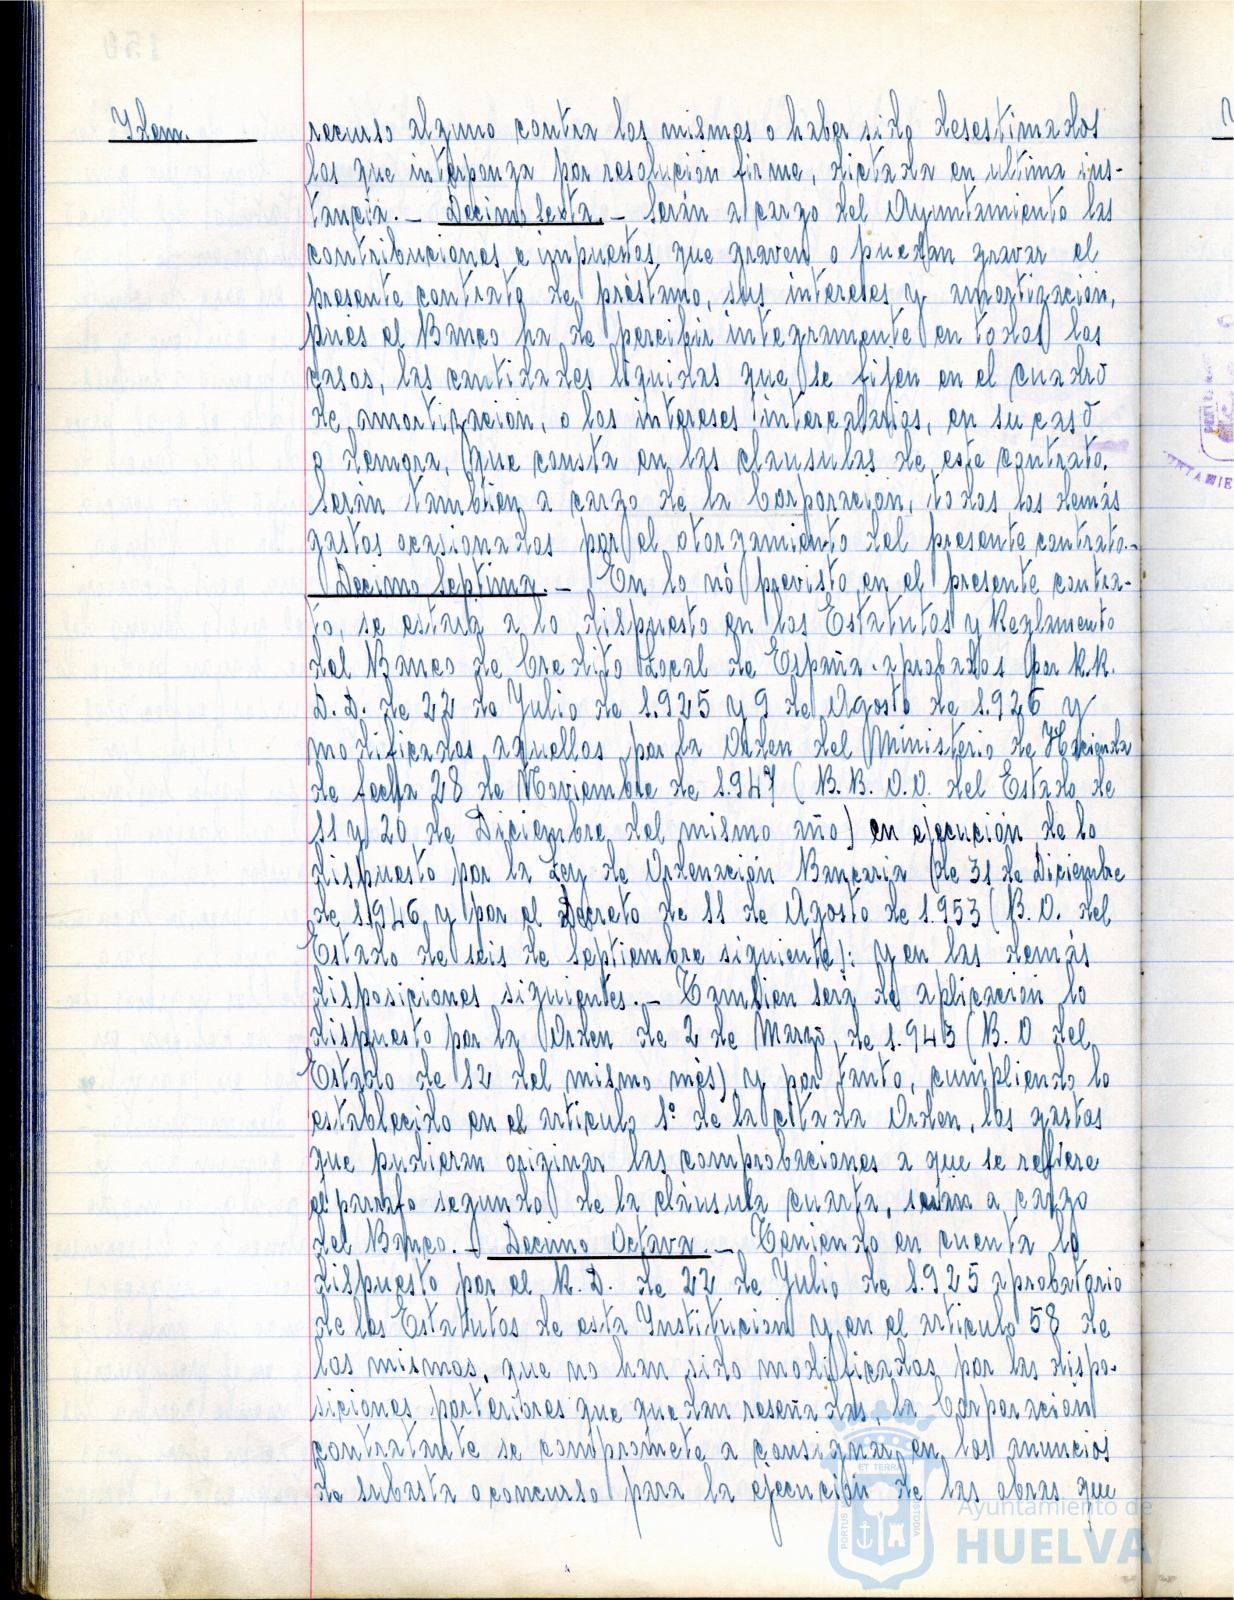 Idem.
recurso alguno contra los mismos o haber sido desestimados
los que interponga por resolución firme, dictada en ultima ins-
tancia.- Decimo Sexta.- Serán a cargo del Ayuntamiento las
contribuciones e impuestos que graven o puedan gravar el
presente contrato de préstamo, sus intereses y amortización,
pués el Banco ha de percibir integramente en todos los
casos, las cantidades liquidas que se fijen en el cuadro
de amortización, o los intereses intercalarios, en su caso
o demora, que consta en las clausulas de este contrato.
Serán tambien a cargo de la Corporación, todos los demás
gastos ocasionados por el otorgamiento del presente contrato.-
Decimo Septima.- En lo nó previsto en el presente contra-
to, se estará a lo dispuesto en los Estatutos y Reglamento
del Banco de Credito Local de España aprobados por R.R.
D.D. de 22 de Julio de 1.925 y 9 de Agosto de 1.926 y
modificados aquellos por la Orden del Ministerio de Hacienda
de fecha 28 de Noviembre de 1.947 (B.B. O.O. del Estado de
11 y 20 de Diciembre del mismo año) en ejecución de lo
dispuesto por la Ley de Ordenación Bancaria (de 31 de Diciembre
de 1.946 y por el Decreto de 11 de Agosto de 1.953 (B.O. del
Estado de seis de septiembre siguiente): y en las demás
disposiciones siguientes.- Tambien será de aplicación lo
dispuesto por la Orden de 2 de Marzo, de 1.943 (B.O del
Estado de 12 del mismo més) y por tanto, cumpliendo lo
establecido en el articulo 1º de la citada Orden, los gastos
que pudieran originar las comprobaciones a que se refiere
el parrafo segundo de la cláusula cuarta, serán a cargo
del Banco.- Decimo Octava.- Teniendo en cuenta lo
dispuesto por el R.D. de 22 de Julio de 1.925 aprobatorio
de los Estatutos de esta Institución y en el articulo 58 de
los mismos, que no han sido modificados por las dispo-
siciones posteriores que quedan reseñadas, la Corporación
contratante se compromete a consignar en los anuncios
de subasta o concurso para la ejecución de las obras que
Ayuntamiento de
HUELVA